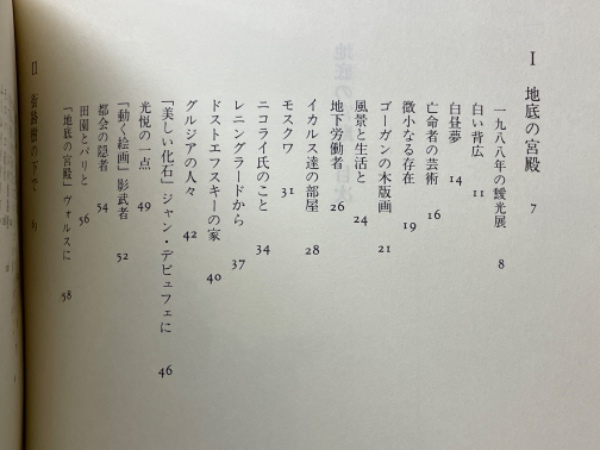 I 地底の宮殿 7
一九八八年の靉光展 8
白い背広 11
白昼夢 14
亡命者の芸術 16
微小なる存在 19
ゴーガンの木版画 21
風景と生活と 24
地下労働者 26
イカルス達の部屋 28
モスクワ 31
ニコライ氏のこと 34
レニングラードから 37
ドストエフスキーの家 40
グルジアの人々 42
「美しい化石」ジャン・デビュフェに 46
光悦の一点 49
「動く絵画」影武者 52
都会の隠者 54
田園とパリと 56
「地底の宮殿」ヴォルスに 58
II 街路樹の下で